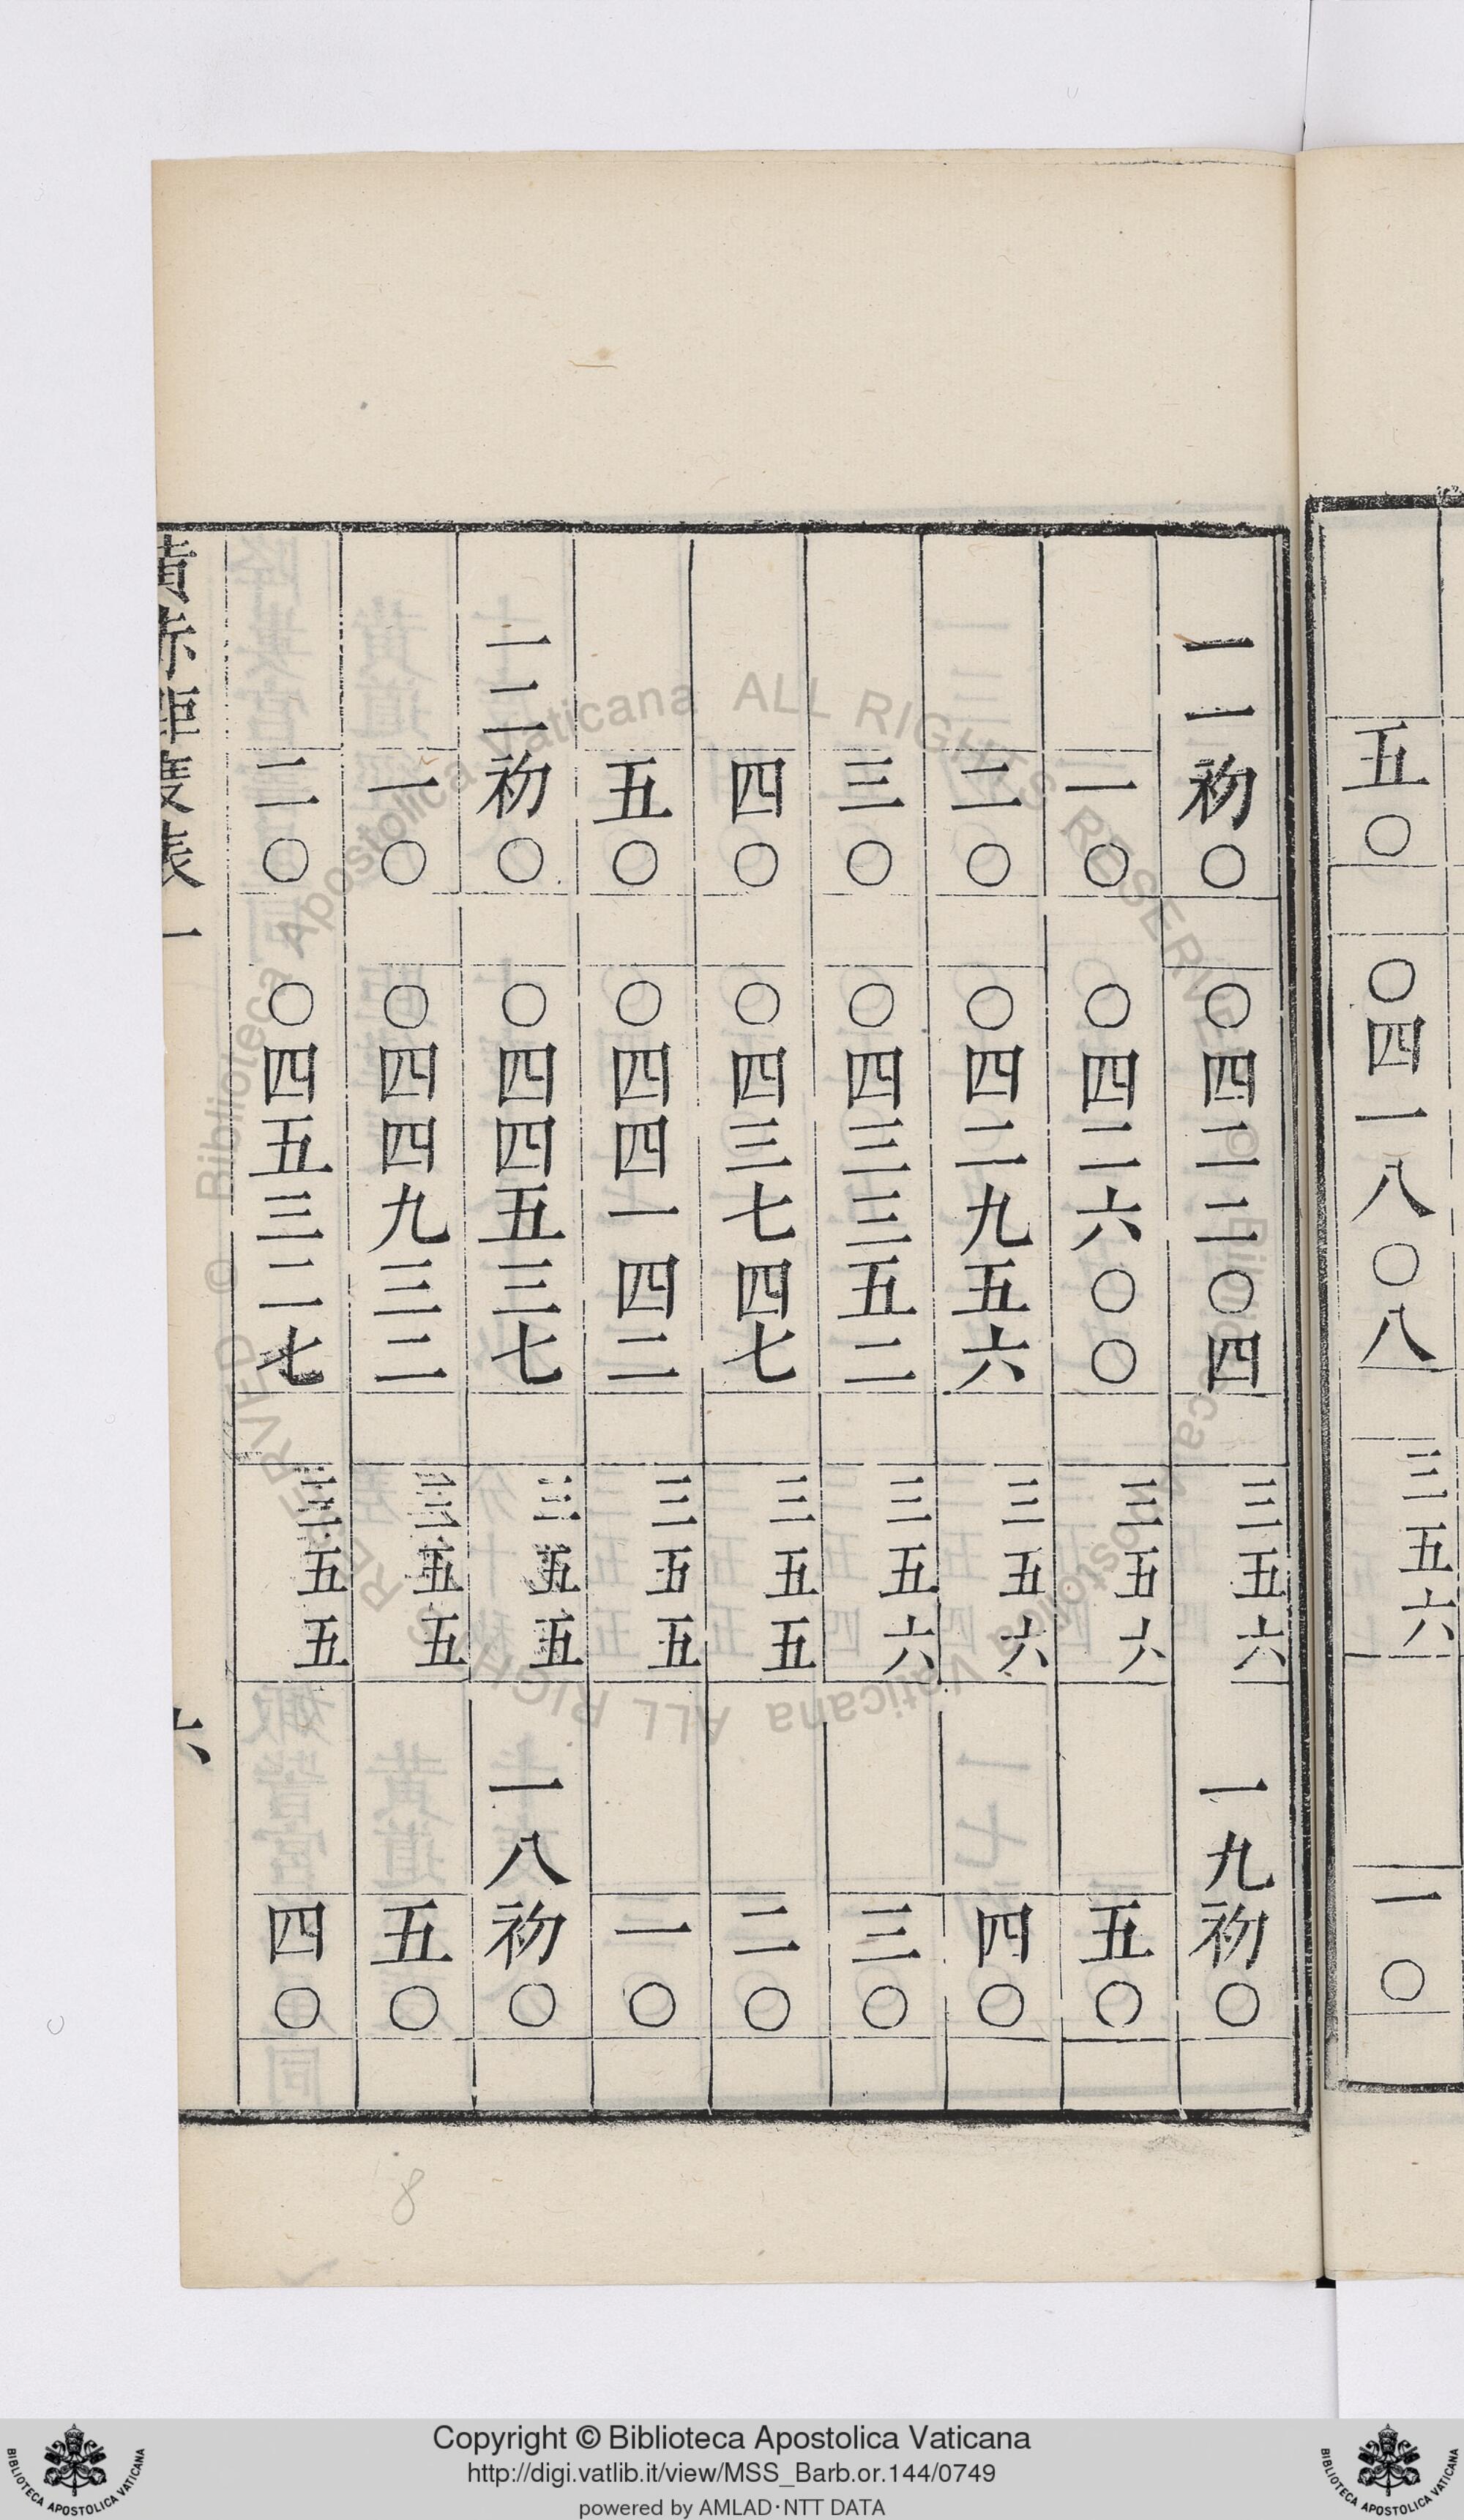 五〇 〇四一八〇八 三五六 一〇
一一初〇 〇四二二〇四 三五六 一九初〇
一〇 〇四二六〇〇 三五六 五〇
二〇 〇四二九五六 三五六 四〇
三〇 〇四三三五二 三五六 三〇
四〇 〇四三七四七 三五五 二〇
五〇 〇四四一四二 三五五 一〇
一二初〇 〇四四五三七 三五五 一八初〇
一〇 〇四四九三二 三五五 五〇
二〇 〇四五三二七 三五五 四〇
一 六
8
© Biblioteca Apostolica Vaticana ALL RIGHTS RESERVED
© Biblioteca Apostolica Vaticana ALL RIGHTS RESERVED
Copyright © Biblioteca Apostolica Vaticana
http://digi.vatlib.it/view/MSS_Barb.or.144/0749
powered by AMLAD･NTT DATA
BIBLIOTECA APOSTOLICA VATICANA
BIBLIOTECA APOSTOLICA VATICANA